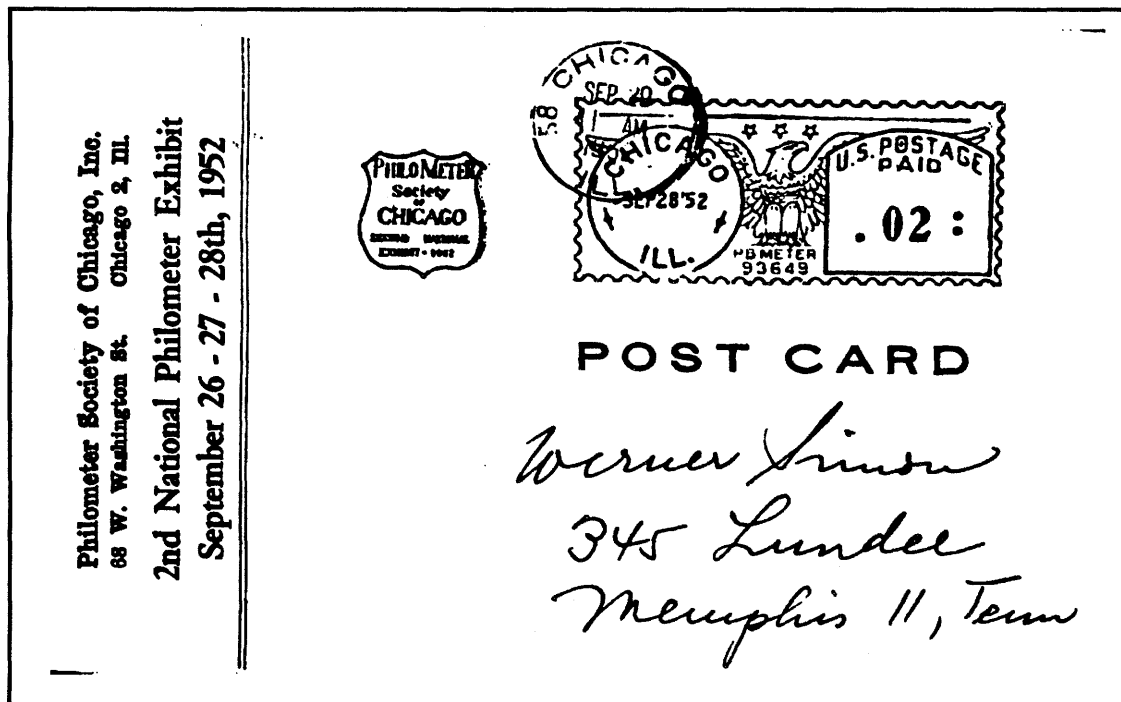 Philometer Society of Chicago, Inc.
68 W. Washington St. Chicago 2, Ill.
2nd National Philometer Exhibit
September 26 - 27 - 28th, 1952
PHILOMETER
Society
OF
CHICAGO
SECOND NATIONAL
EXHIBIT • 1952
58 CHICAGO
SEP
AM
CHICAGO
SEP 28 '52
ILL.
PB METER
93649
U.S. POSTAGE
PAID
.02:
POST CARD
Werner Simon
345 Lundee
Memphis 11, Tenn